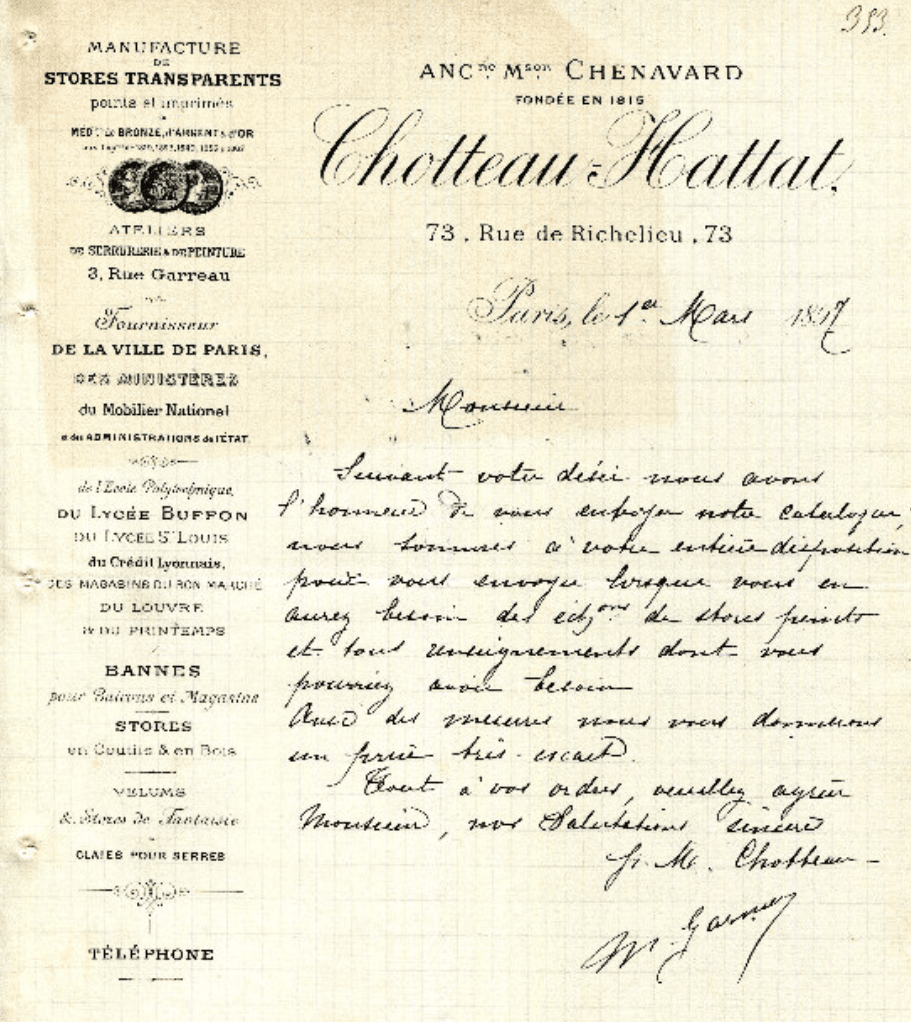 353.
MANUFACTURE
DE
STORES TRANSPARENTS
peints et imprimés
MÉD.les de BRONZE, d'ARGENT & d'OR
ATELIERS
DE SERRURERIE & DE PEINTURE
3, Rue Garreau
Fournisseur
DE LA VILLE DE PARIS,
DES MINISTÈRES
du Mobilier National
et des ADMINISTRATIONS de l'ÉTAT
de l'Ecole Polytechnique,
DU LYCÉE BUFFON
DU LYCÉE St LOUIS
du Crédit Lyonnais,
DES MAGASINS DU BON MARCHÉ
DU LOUVRE
& DU PRINTEMPS
BANNES
pour Balcons et Magasins
STORES
en Coutils & en Bois
VELUMS
& Stores de Fantaisie
CLAIES POUR SERRES
TÉLÉPHONE
ANCne Mson CHENAVARD
FONDÉE EN 1815
Chotteau=Hattat,
73, Rue de Richelieu, 73
Paris, le 1er Mars 1897
Monsieur
Suivant votre désir nous avons
l'honneur de vous envoyer notre catalogue,
nous sommes à votre entière disposition
pour vous envoyer lorsque vous en
aurez besoin des échons de stores peints
et tous renseignements dont vous
pourriez avoir besoin
Avec des mesures nous vous donnerons
un prix très exact.
Tout à vos ordres, veuillez agréer
Monsieur, nos Salutations sincères
Chotteau